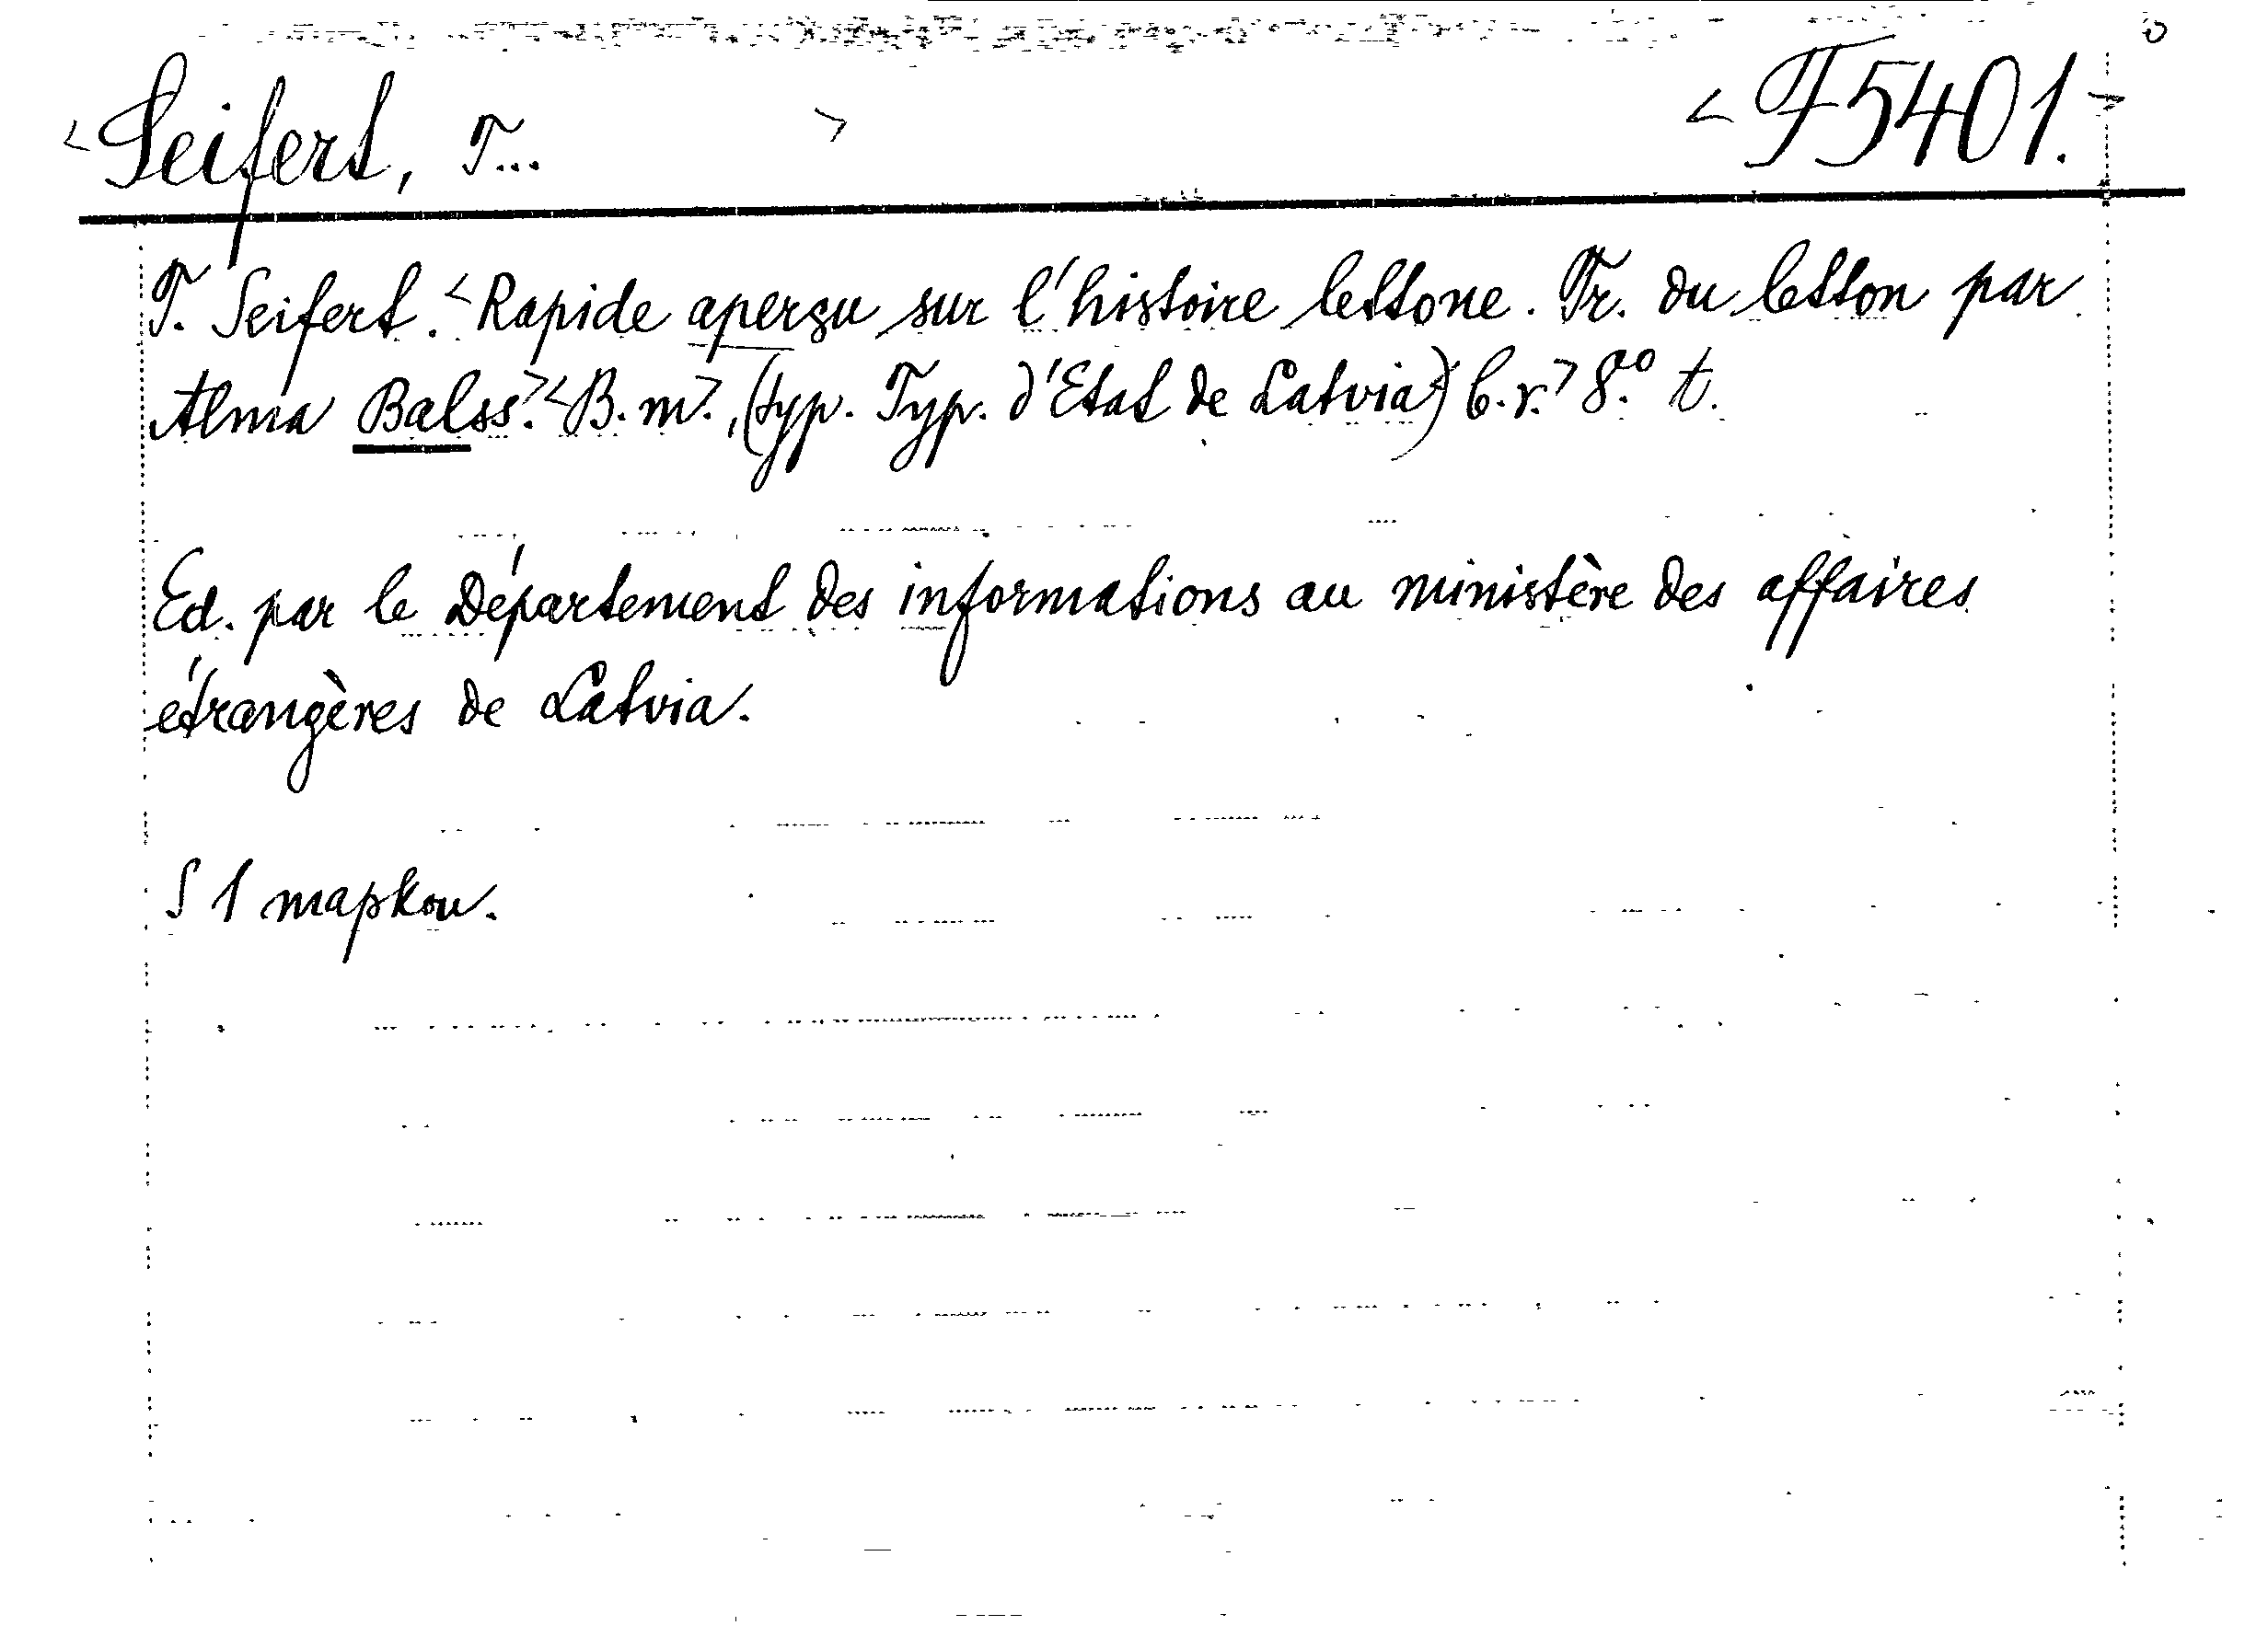 <Seifert, T...> <F5401.>
T. Seifert. <Rapide aperçu sur l'histoire lettone. Tr. du letton par
Alma Balss.> <B. m.>, (typ. Typ. d'Etat de Latvia) b.r.> 8.° t.
Ed. par le Département des informations au ministère des affaires
étrangères de Latvia.
S 1 mapkou.